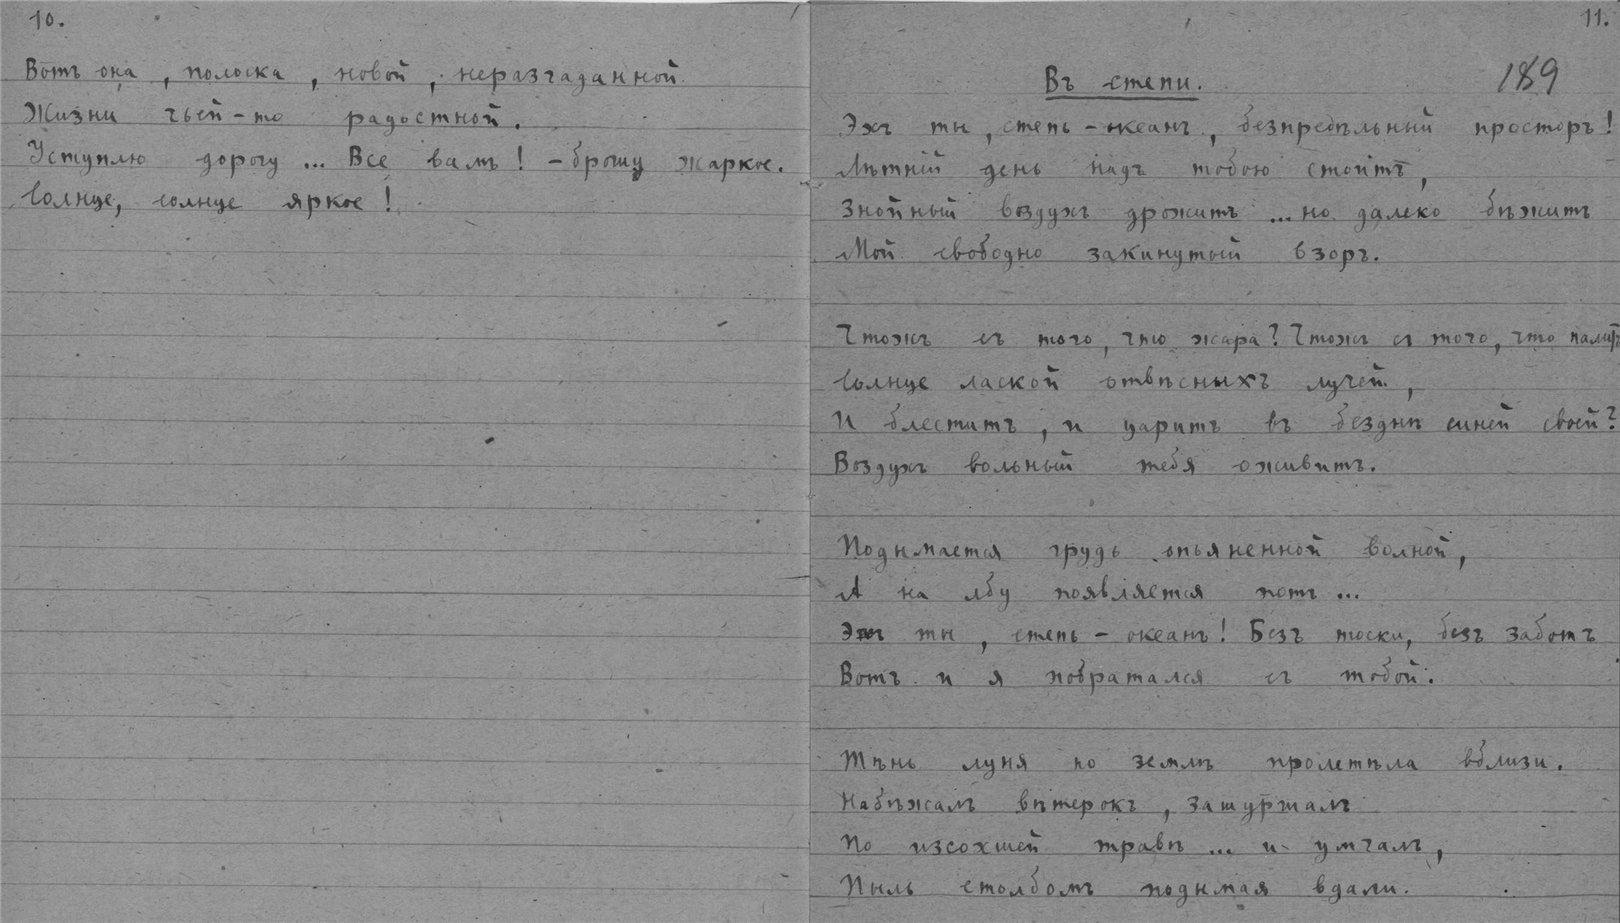 10.
Вотъ она, полоска, новой, неразгаданной
Жизни чьей-то радостной.
Уступлю дорогу ... Все вамъ! - брошу жаркое.
Солнце, солнце яркое!
11.
189
Въ степи.
Эхъ ты, степь-океанъ, безпредѣльный просторъ!
Лѣтній день надъ тобою стоитъ,
Знойный воздухъ дрожитъ ... но далеко бѣжитъ
Мой свободно закинутый взоръ.
Чтожъ съ того, что жара? Чтожъ съ того, что палитъ
Солнце лаской отвѣсныхъ лучей,
И блеститъ, и царитъ въ безднѣ синей своей?
Воздухъ вольный тебя оживитъ.
Подымается грудь опьяненной волной,
А на лбу появляется потъ ...
Эхъ ты, степь - океанъ! Безъ тоски, безъ заботъ
Вотъ и я побратался съ тобой.
Тѣнь луня по землѣ пролетѣла вблизи.
Набѣжалъ вѣтерокъ, зашуршалъ
По изсохшей травѣ ... и умчалъ,
Пыль столбомъ подымая вдали.